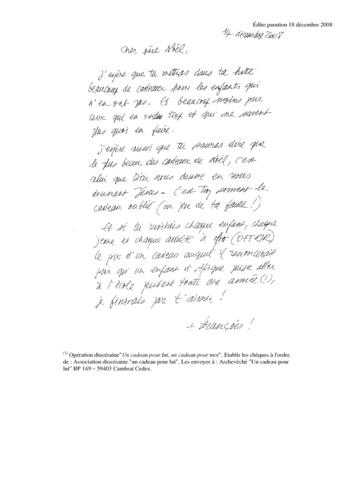 Édito parution 18 décembre 2008
14 décembre 2008
Cher père Noël,
J'espère que tu mettras dans ta hotte
beaucoup de cadeaux pour les enfants qui
n'en ont pas. Et beaucoup moins pour
ceux qui en ont trop et qui ne savent
plus quoi en faire.
J'espère aussi que tu sauras dire que
le plus beau des cadeaux de Noël, c'est
celui que Dieu nous donne en nous
donnant Jésus - C'est trop souvent le
cadeau oublié (un peu de ta faute !)
Et si tu invitais chaque enfant, chaque
jeune et chaque adulte à offrir (OFFRIR)
le prix d'un cadeau auquel il renoncerait
pour qu'un enfant d'Afrique puisse aller
à l'école pendant toute une année (1),
je finirais par t'aimer !
+ François !
(1) Opération diocésaine "Un cadeau pour lui, un cadeau pour moi". Etablir les chèques à l'ordre
de : Association diocésaine "un cadeau pour lui". Les envoyer à : Archevêché "Un cadeau pour
lui" BP 149 – 59403 Cambrai Cedex.